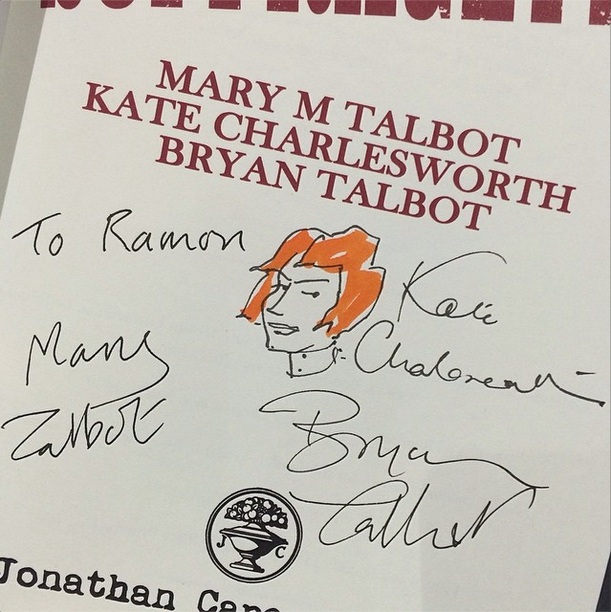 MARY M TALBOT
KATE CHARLESWORTH
BRYAN TALBOT
To Ramon
Kate
Charlesworth
Mary
Talbot
Bryan
Talbot
J C
Jonathan Cape